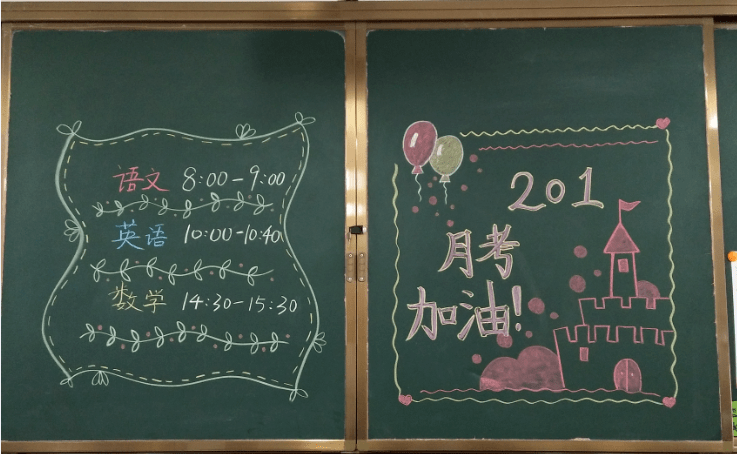 语文 8:00-9:00
英语 10:00-10:40
数学 14:30-15:30
201
月考
加油!